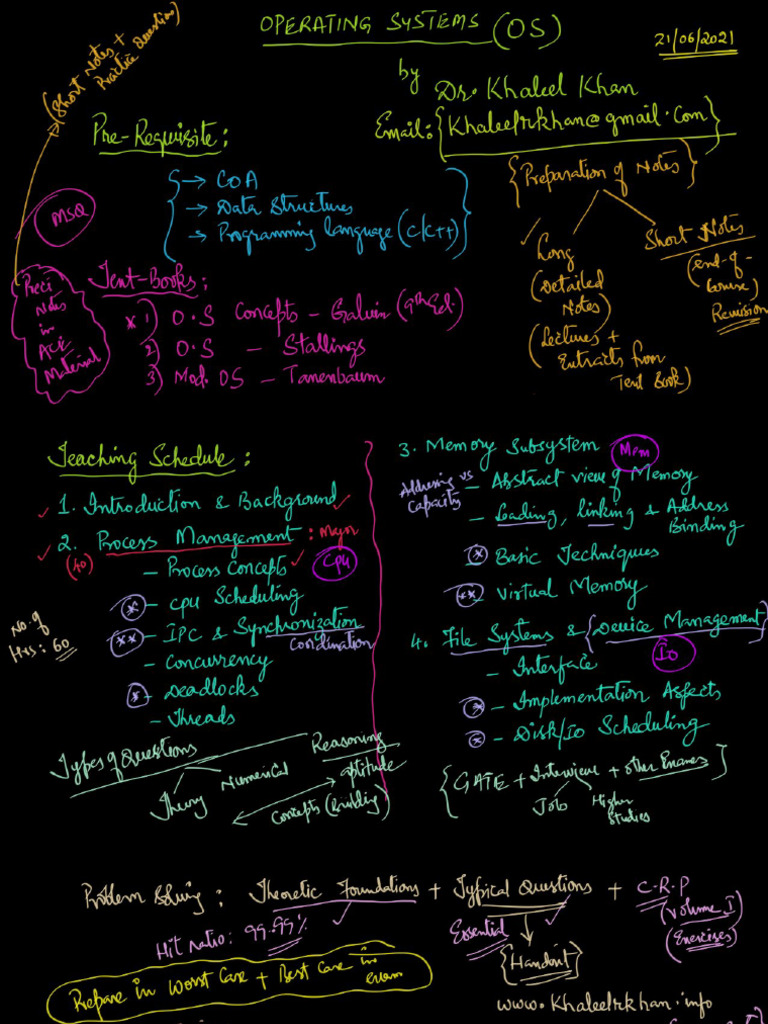 OPERATING SYSTEMS (OS)
21/06/2021
(Short Notes +
Practice Question)
by
Dr. Khaleel Khan
Email: {Khaleelrkhan@gmail.com}
Pre-Requisite:
→ COA
→ Data Structures
→ Programming language (C/C++)
MSQ
{Preparation of Notes}
Long
(Detailed
Notes)
(Lectures +
Extracts from
Text Book)
Short Notes
(end-of-
course)
Revision
Preci
Notes
in
ACE
Material
Text-Books:
* 1) O.S Concepts - Galvin (9th Ed.)
2) O.S - Stallings
3) Mod. OS - Tanenbaum
Teaching Schedule:
1. Introduction & Background
2. Process Management : Major
(40)
- Process Concepts
CPU
* - CPU Scheduling
** - IPC & Synchronization
Coordination
- Concurrency
* - Deadlocks
- Threads
No. of
Hrs: 60
3. Memory Subsystem
Mem
Addressing vs
Capacity
- Abstract view of Memory
- Loading, linking & Address
Binding
* - Basic Techniques
** - Virtual Memory
4. File Systems & {Device Management}
IO
- Interface
* - Implementation Aspects
* - Disk/IO Scheduling
Types of Questions
Theory
Numerical
Reasoning
aptitude
Concepts (Building)
{GATE + Interview + other Exames}
Job
Higher
Studies
Problem Solving : Theoretic Foundations + Typical Questions + C.R.P
(Volume I)
(Exercises)
Hit ratio: 99.99%
Essential
{Handout}
Prepare in Worst Case + Best Case in
exam
www.Khaleelrkhan.info